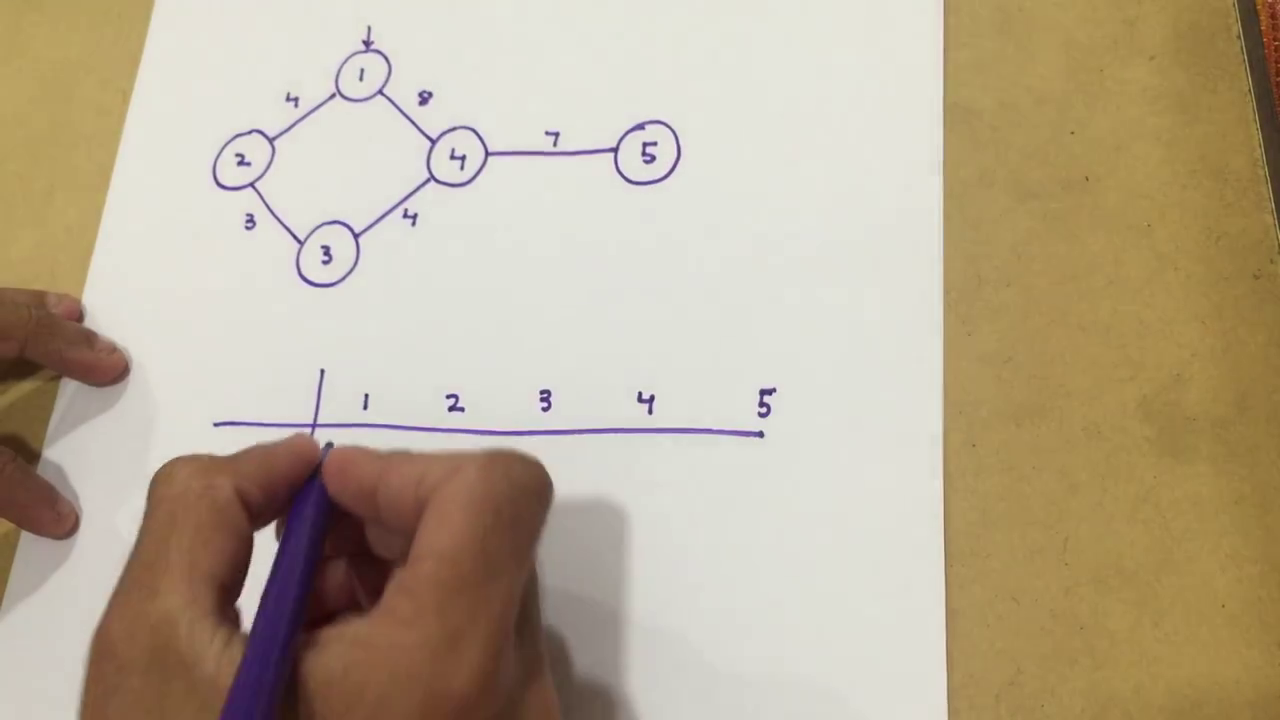 1
4 8
2 4 7 5
3 4
3
1 2 3 4 5